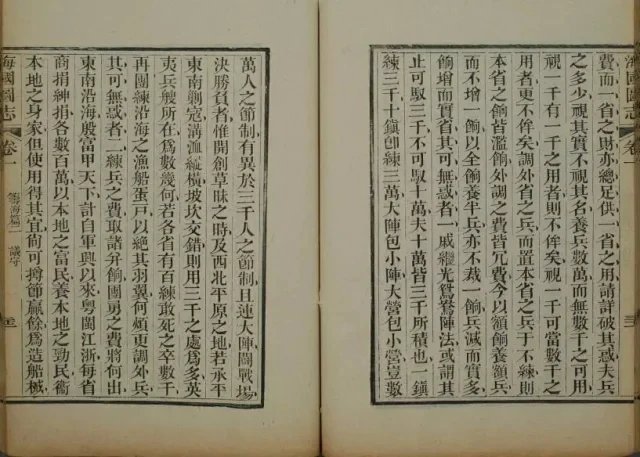 海國圖志 卷一
費而一省之財亦總足供一省之用請詳破其惑夫兵
之多少視其實不視其名養兵數萬而無數千之可用
視一千有一千之用者則不侔矣視一千可當數千之
用者更不侔矣調外省之兵而置本省之兵于不練則
本省之餉皆濫餉外調之費皆冗費今以額餉養額兵
而不增一餉以全餉養半兵亦不裁一餉兵減而實多
餉增而實省其可無惑者一戚繼光鴛鴦陣法或謂其
止可馭三千不可馭十萬夫十萬皆三千所積也一鎮
練三千十鎮卽練三萬大陣包小陣大營包小營豈數
萬人之節制有異於三千人之節制且連大陣鬭戰場
決勝負者惟開創草昧之時及西北平原之地若承平
東南剿寇溝洫縱橫坡坎交錯則用三千之處爲多英
夷兵艘所在爲數幾何若各省有百練敢死之卒數千
再團練沿海之漁船蛋戸以絕其羽翼何煩更調外兵
其可無惑者二練兵之費取諸分餉團勇之費將何出
東南沿海殷富甲天下計自軍興以來粵閩江浙每省
商捐紳捐各數百萬以本地之富民養本地之勁民衞
本地之身家但使用得其宜尙可撙節贏餘爲造船械
海國圖志 卷一 籌海篇一 議守